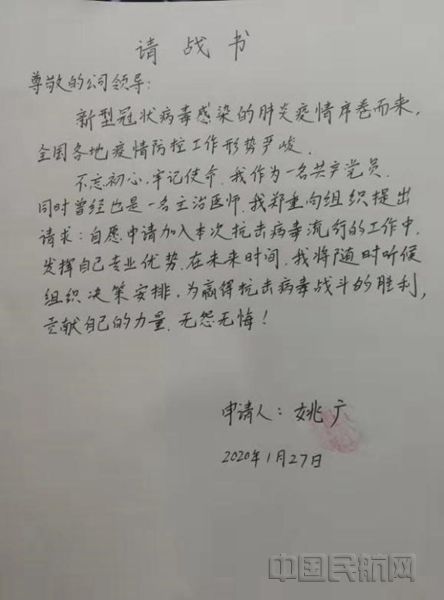 请战书
尊敬的公司领导:
新型冠状病毒感染的肺炎疫情席卷而来,
全国各地疫情防控工作形势严峻.
不忘初心,牢记使命.我作为一名共产党员.
同时曾经也是一名主治医师.我郑重向组织提出
请求:自愿申请加入本次抗击病毒流行的工作中.
发挥自己专业优势.在未来时间.我将随时听候
组织决策安排,为赢得抗击病毒战斗的胜利,
贡献自己的力量.无怨无悔!
申请人:姚广
2020年1月27日
中国民航网